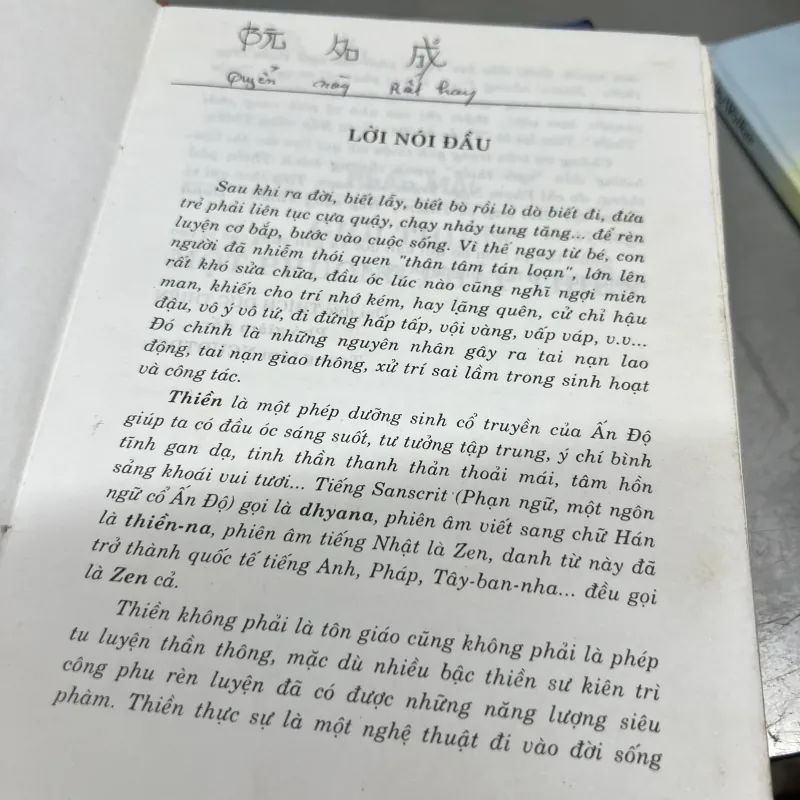 阮 如 成
Quyển này Rất hay
LỜI NÓI ĐẦU
Sau khi ra đời, biết lẫy, biết bò rồi lò dò biết đi, đứa
trẻ phải liên tục cựa quậy, chạy nhảy tung tăng... để rèn
luyện cơ bắp, bước vào cuộc sống. Vì thế ngay từ bé, con
người đã nhiễm thói quen "thân tâm tán loạn", lớn lên
rất khó sửa chữa, đầu óc lúc nào cũng nghĩ ngợi miên
man, khiến cho trí nhớ kém, hay lặng quên, cử chỉ hậu
đậu, vô ý vô tứ, đi đứng hấp tấp, vội vàng, vấp váp, v.v...
Đó chính là những nguyên nhân gây ra tai nạn lao
động, tai nạn giao thông, xử trí sai lầm trong sinh hoạt
và công tác.
Thiền là một phép dưỡng sinh cổ truyền của Ấn Độ
giúp ta có đầu óc sáng suốt, tư tưởng tập trung, ý chí bình
tĩnh gan dạ, tinh thần thanh thản thoải mái, tâm hồn
sảng khoái vui tươi... Tiếng Sanscrit (Phạn ngữ, một ngôn
ngữ cổ Ấn Độ) gọi là dhyana, phiên âm viết sang chữ Hán
là thiền-na, phiên âm tiếng Nhật là Zen, danh từ này đã
trở thành quốc tế tiếng Anh, Pháp, Tây-ban-nha... đều gọi
là Zen cả.
Thiền không phải là tôn giáo cũng không phải là phép
tu luyện thần thông, mặc dù nhiều bậc thiền sư kiên trì
công phu rèn luyện đã có được những năng lượng siêu
phàm. Thiền thực sự là một nghệ thuật đi vào đời sống